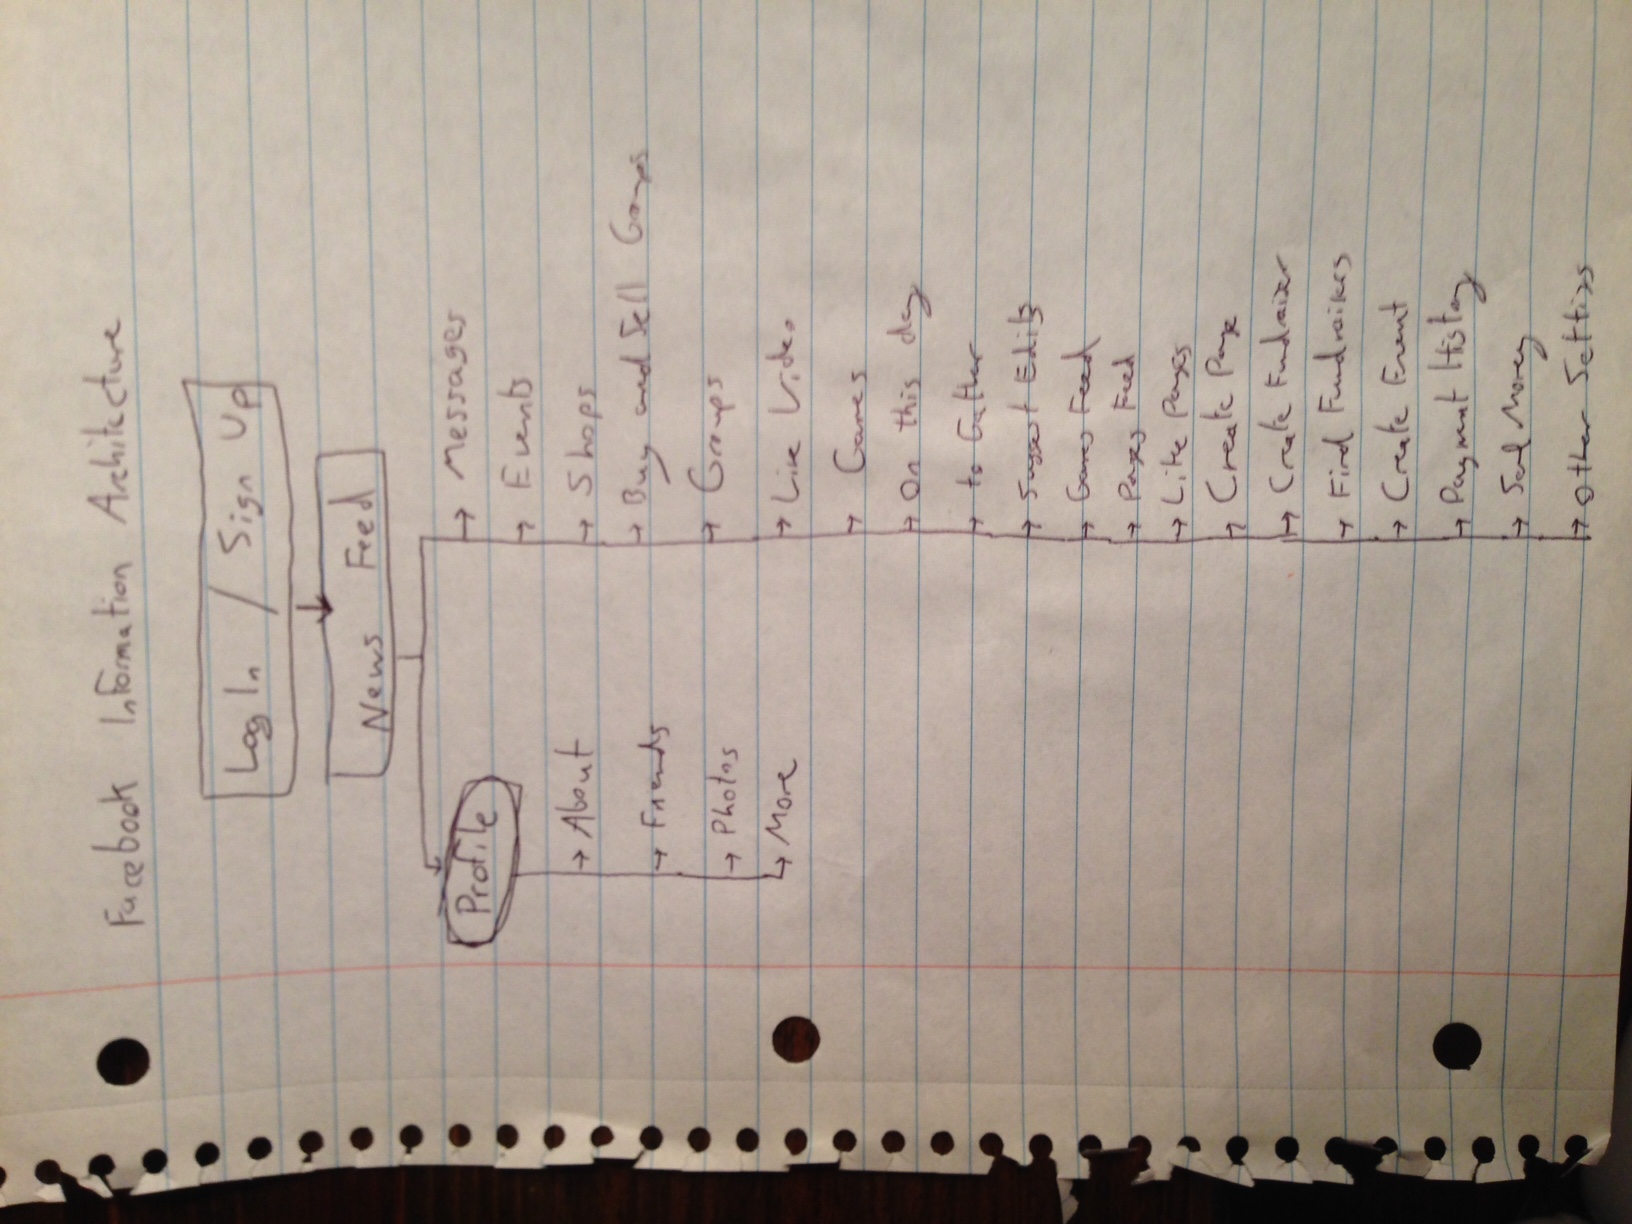 Facebook Information Architecture
Log In / Sign Up
News Feed
Profile
About
Friends
Photos
More
Messages
Events
Shops
Buy and Sell Groups
Groups
Live Video
Games
On this day
to Gather
Suggest Edits
Games Feed
Pages Feed
Like Pages
Create Page
Create Fundraiser
Find Fundraisers
Create Event
Payment History
Send Money
Other Settings